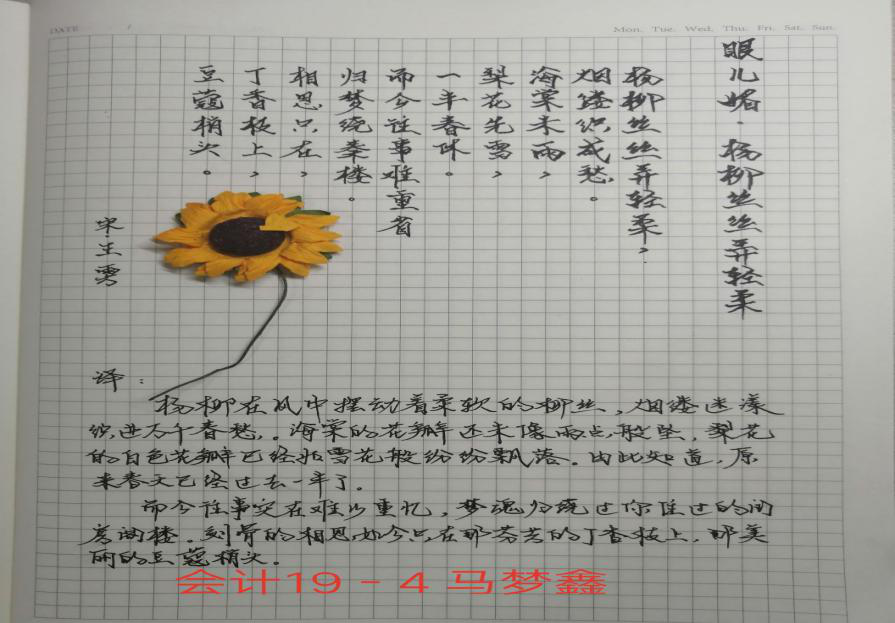 DATE
Mon. Tue. Wed. Thu. Fri. Sat. Sun.
眼儿媚·杨柳丝丝弄轻柔
杨柳丝丝弄轻柔，
烟缕织成愁。
海棠未雨，
梨花先雪，
一半春休。
而今往事难重省
归梦绕秦楼。
相思只在，
丁香枝上，
豆蔻梢头。
宋·王雱
译：
杨柳在风中摆动着柔软的柳丝，烟缕迷漾
织进万千春愁，。海棠的花瓣还未像雨点般坠，梨花
的白色花瓣已经如雪花般纷纷飘落。由此知道，原
来春天已经过去一半了。
而今往事实在难以重忆，梦魂归绕过你住过的闺
房阁楼。刻骨的相思，如今只在那芬芳的丁香枝上，那美
丽的豆蔻梢头。
会计19-4 马梦鑫